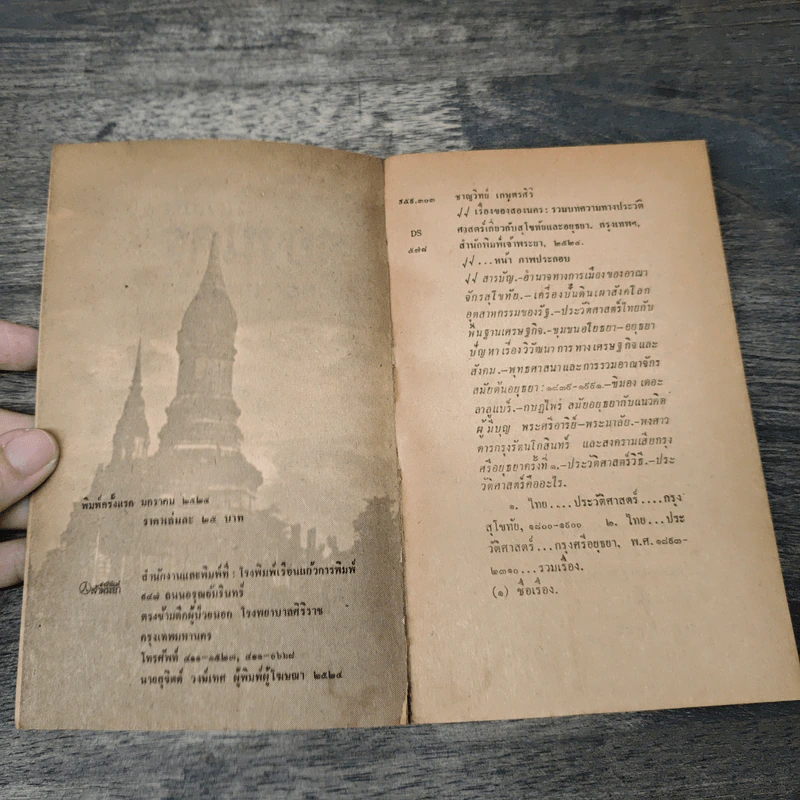 พิมพ์ครั้งแรก มกราคม ๒๕๒๔
ราคาเล่มละ ๒๕ บาท
เจ้าพระยา
สำนักงานและพิมพ์ที่ : โรงพิมพ์เรือนแก้วการพิมพ์
๙๔๗ ถนนอรุณอัมรินทร์
ตรงข้ามตึกผู้ป่วยนอก โรงพยาบาลศิริราช
กรุงเทพมหานคร
โทรศัพท์ ๔๑๑-๑๕๒๓, ๔๑๑-๐๖๖๘
นายสุจิตต์ วงษ์เทศ ผู้พิมพ์ผู้โฆษณา ๒๕๒๔
๙๕๙.๓๐๓ ชาญวิทย์ เกษตรศิริ
√√ เรื่องของสองนคร: รวมบทความทางประวัติ
DS ศาสตร์เกี่ยวกับสุโขทัยและอยุธยา. กรุงเทพฯ,
๕๗๘ สำนักพิมพ์เจ้าพระยา, ๒๕๒๔.
√√ ...หน้า ภาพประกอบ
√√ สารบัญ.-อำนาจทางการเมืองของอาณา
จักรสุโขทัย.-เครื่องปั้นดินเผาสังคโลก
อุตสาหกรรมของรัฐ.-ประวัติศาสตร์ไทยกับ
พื้นฐานเศรษฐกิจ.-ชุมชนอโยธยา-อยุธยา
ปัญหาเรื่องวิวัฒนาการทางเศรษฐกิจและ
สังคม.-พุทธศาสนาและการรวมอาณาจักร
สมัยต้นอยุธยา : ๑๘๙๔-๑๙๙๑.-ซิมอง เดอะ
ลาลูแบร์.-กบฏไพร่ สมัยอยุธยากับแนวคิด
ผู้มีบุญ พระศรีอาริย์-พระมาลัย.-พงศาว
ดารกรุงรัตนโกสินทร์ และสงครามเสียกรุง
ศรีอยุธยาครั้งที่ ๑.-ประวัติศาสตร์วิธี.-ประ
วัติศาสตร์คืออะไร.
๑. ไทย....ประวัติศาสตร์....กรุง
สุโขทัย, ๑๘๐๐-๑๙๐๐ ๒. ไทย...ประ
วัติศาสตร์...กรุงศรีอยุธยา, พ.ศ. ๑๘๙๓-
๒๓๑๐...รวมเรื่อง.
(๑) ชื่อเรื่อง.